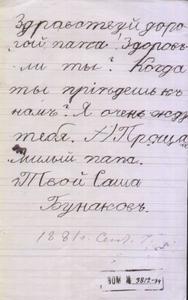 Здравствуй доро
гой папа, Здоровъ
ли ты? Когда
ты приѣдешь къ
намъ? Я очень жду
тебя. Проща
Милый папа.
Твой Саша
Бунаковъ.
1881. Сент.